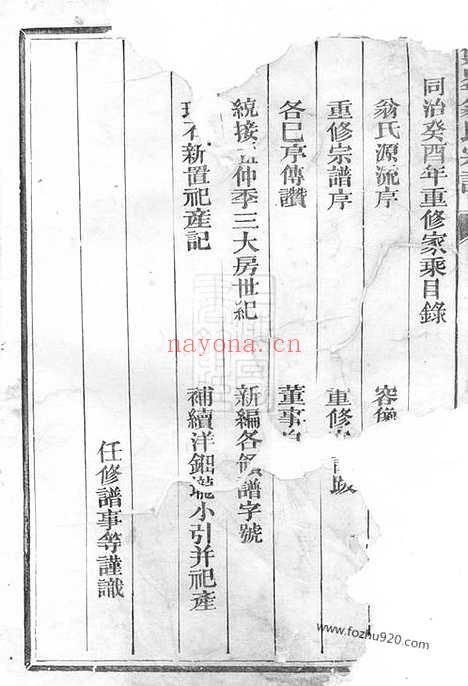 同治癸酉年重修家乘目錄
翁氏源流序
容儀
重修宗譜序
重修
跋
各巳亭傳讚
董事
統接
仲季三大房世紀
新編各領譜字號
新置祀產記
補續洋鈿壠小引并祀產
任修譜事等謹識
nayona.cn
www.fozhu920.com